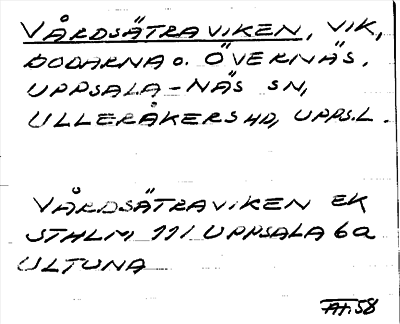 VÅRDSÄTRAVIKEN, VIK,
BODARNA o. ÖVERNÄS.
UPPSALA-NÄS SN,
ULLERÅKERS HD, UPPS.L.
VÅRDSÄTRAVIKEN EK
STHLM 111 UPPSALA 6a
ULTUNA
AH.58